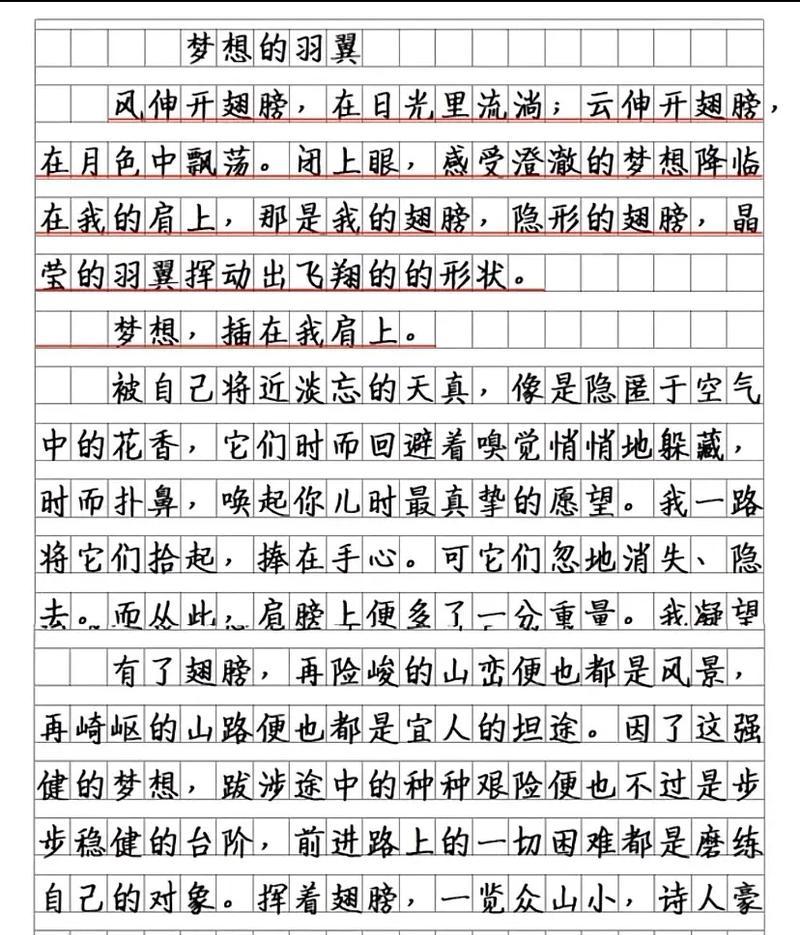 梦想的羽翼
风伸开翅膀，在日光里流淌；云伸开翅膀，
在月色中飘荡。闭上眼，感受澄澈的梦想降临
在我的肩上，那是我的翅膀，隐形的翅膀，晶
莹的羽翼挥动出飞翔的的形状。
梦想，插在我肩上。
被自己将近淡忘的天真，像是隐匿于空气
中的花香，它们时而回避着嗅觉悄悄地躲藏，
时而扑鼻，唤起你儿时最真挚的愿望。我一路
将它们拾起，捧在手心。可它们忽地消失、隐
去。而从此，肩膀上便多了一分重量。我凝望
有了翅膀，再险峻的山峦便也都是风景，
再崎岖的山路便也都是宜人的坦途。因了这强
健的梦想，跋涉途中的种种艰险便也不过是步
步稳健的台阶，前进路上的一切困难都是磨练
自己的对象。挥着翅膀，一览众山小，诗人豪